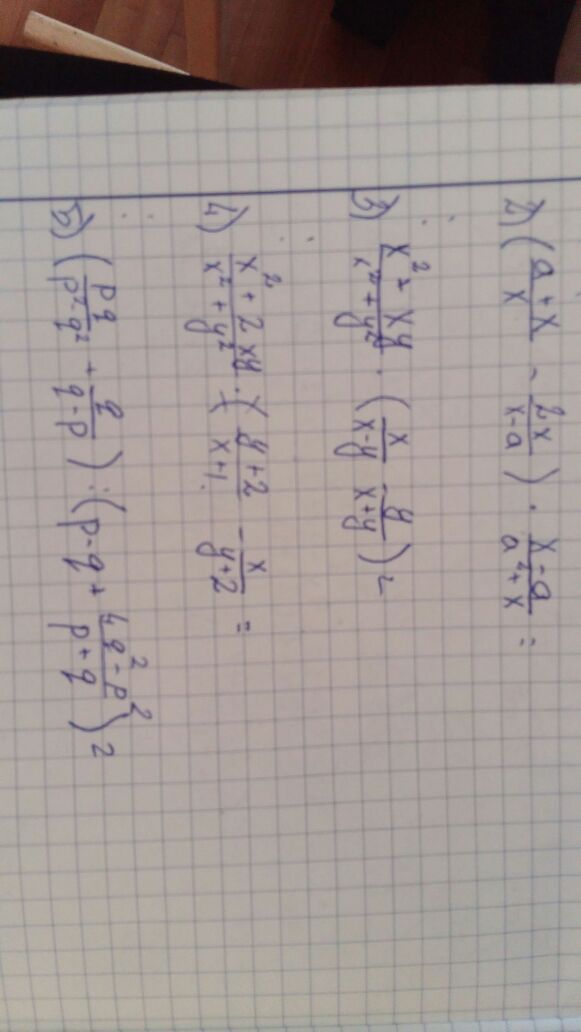 2) ( a+x / x - 2x / x-a ) · x-a / a²+x =
3) x² - xy / x² + y² · ( x / x-y - y / x+y ) =
4) x² + 2xy / x² + y² · ( y+2 / x+1 - x / y+2 =
5) ( pq / p²-q² + q / q-p ) : ( p-q + 4q²-p² / p+q ) =